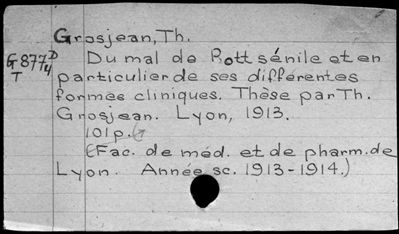 Grosjean, Th.
G 877 D
T 4
Du mal de Pott sénile et en
particulier de ses différentes
formes cliniques. Thèse par Th.
Grosjean. Lyon, 1913.
101p.
(Fac. de méd. et de pharm. de
Lyon. Année sc. 1913-1914.)